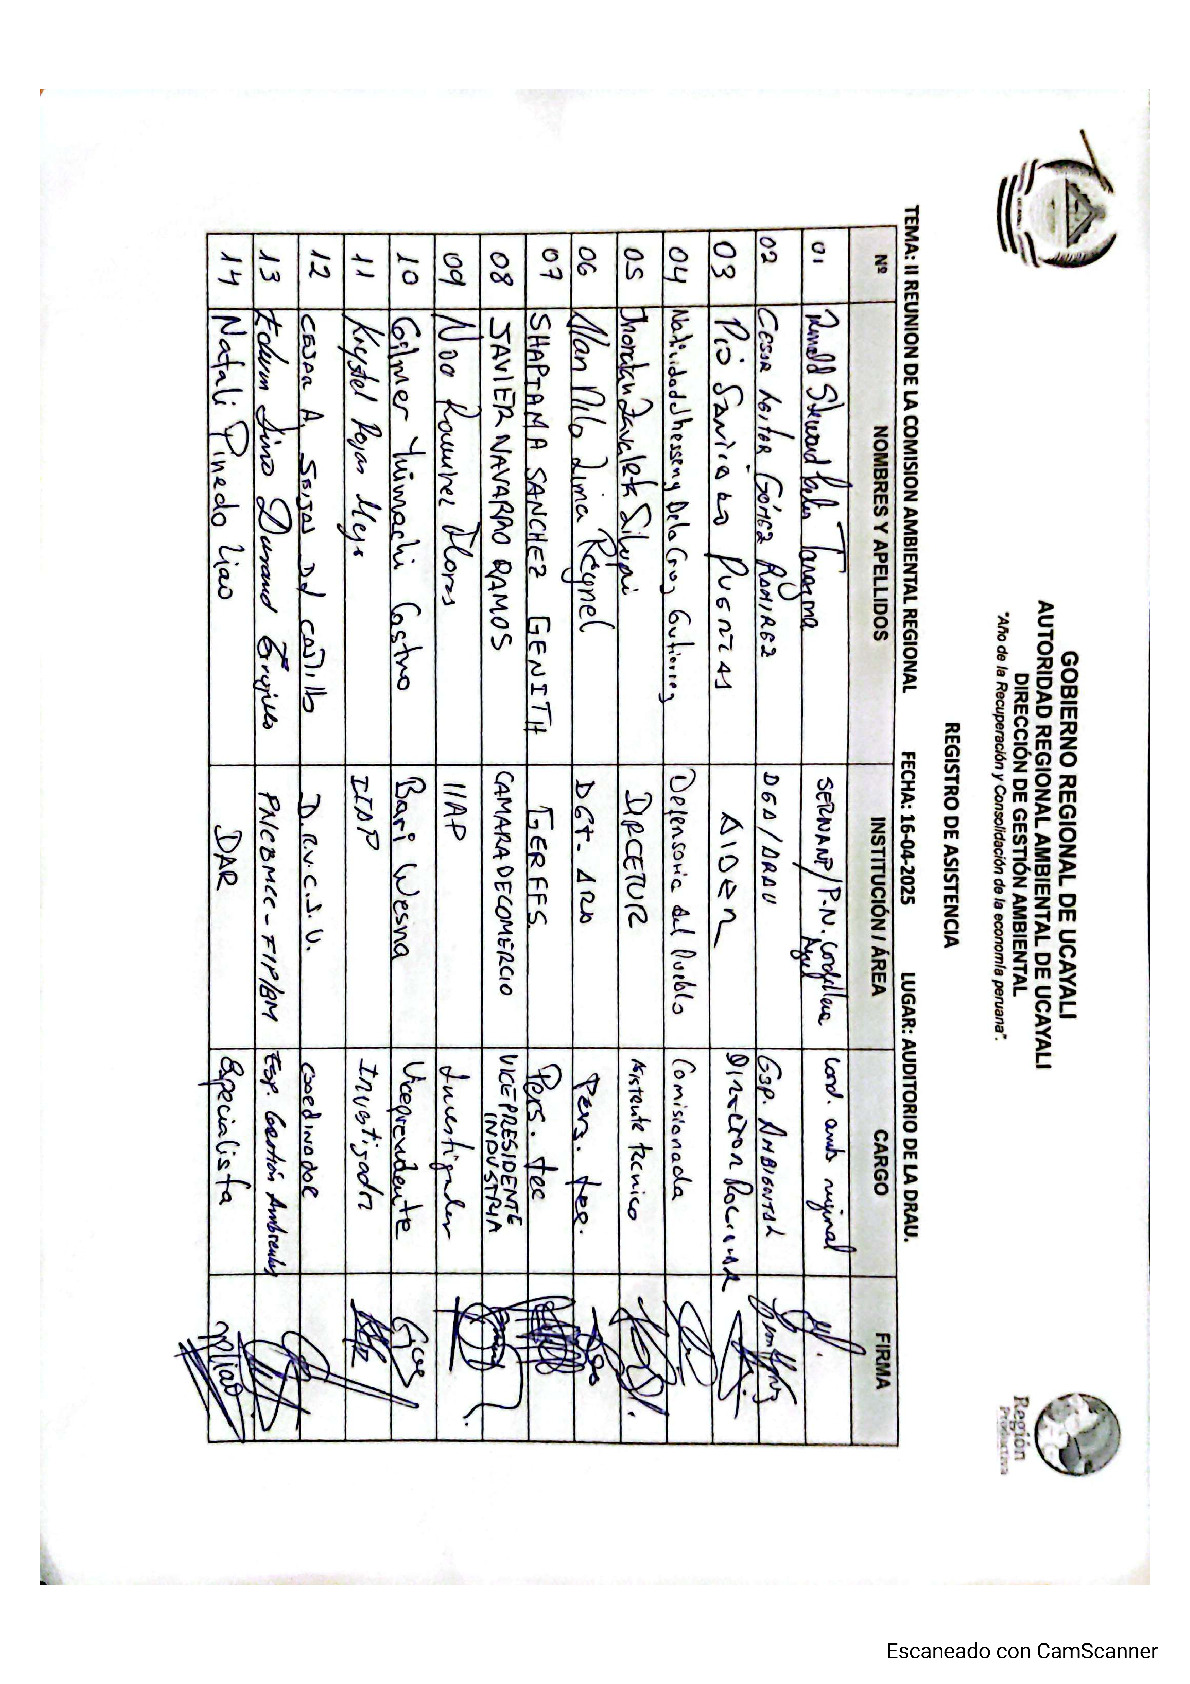 GOBIERNO REGIONAL DE UCAYALI
AUTORIDAD REGIONAL AMBIENTAL DE UCAYALI
DIRECCIÓN DE GESTIÓN AMBIENTAL
"Año de la Recuperación y Consolidación de la economía peruana".
Región
Productiva
REGISTRO DE ASISTENCIA
TEMA: II REUNION DE LA COMISION AMBIENTAL REGIONAL FECHA: 16-04-2025 LUGAR: AUDITORIO DE LA DRAU.
Nº NOMBRES Y APELLIDOS INSTITUCIÓN / ÁREA CARGO FIRMA
01 Ronald Steward Tangoa SERNANP/P.N. Cordillera Azul Cord. amb regional
02 Cesar Heitor Gómez Ramirez DGA/DRAU Esp. AMBIENTAL
03 Pio Santiago Puertas AIDER Director Regional
04 Natividad Dela Cruz Gutierrez Defensoria del Pueblo Comisionada
05 Jhonatan Zavaleta Silvani DIRCETUR Asistente técnico
06 Alan Nilo Lima Reynel DGT. ARA Pers. tec.
07 SHAPIAMA SANCHEZ GENITH GERFFS. Pers. tec
08 JAVIER NAVARRO RAMOS CAMARA DE COMERCIO VICEPRESIDENTE INDUSTRIA
09 Noa Ramirez Flores IIAP Investigador
10 Gilmer Yuimachi Castro Bari Wesna Vicepresidente
11 Krystel Rojas Mego IIAP Investigador
12 CESAR A. Seijas Del Castillo D.R.V.C.S.U. Coordinador
13 Edwin Lino Durand PNICBMCC-FIP/BM Esp. Gestión Ambiental
14 Natali Pinedo Liao DAR Especialista
Escaneado con CamScanner